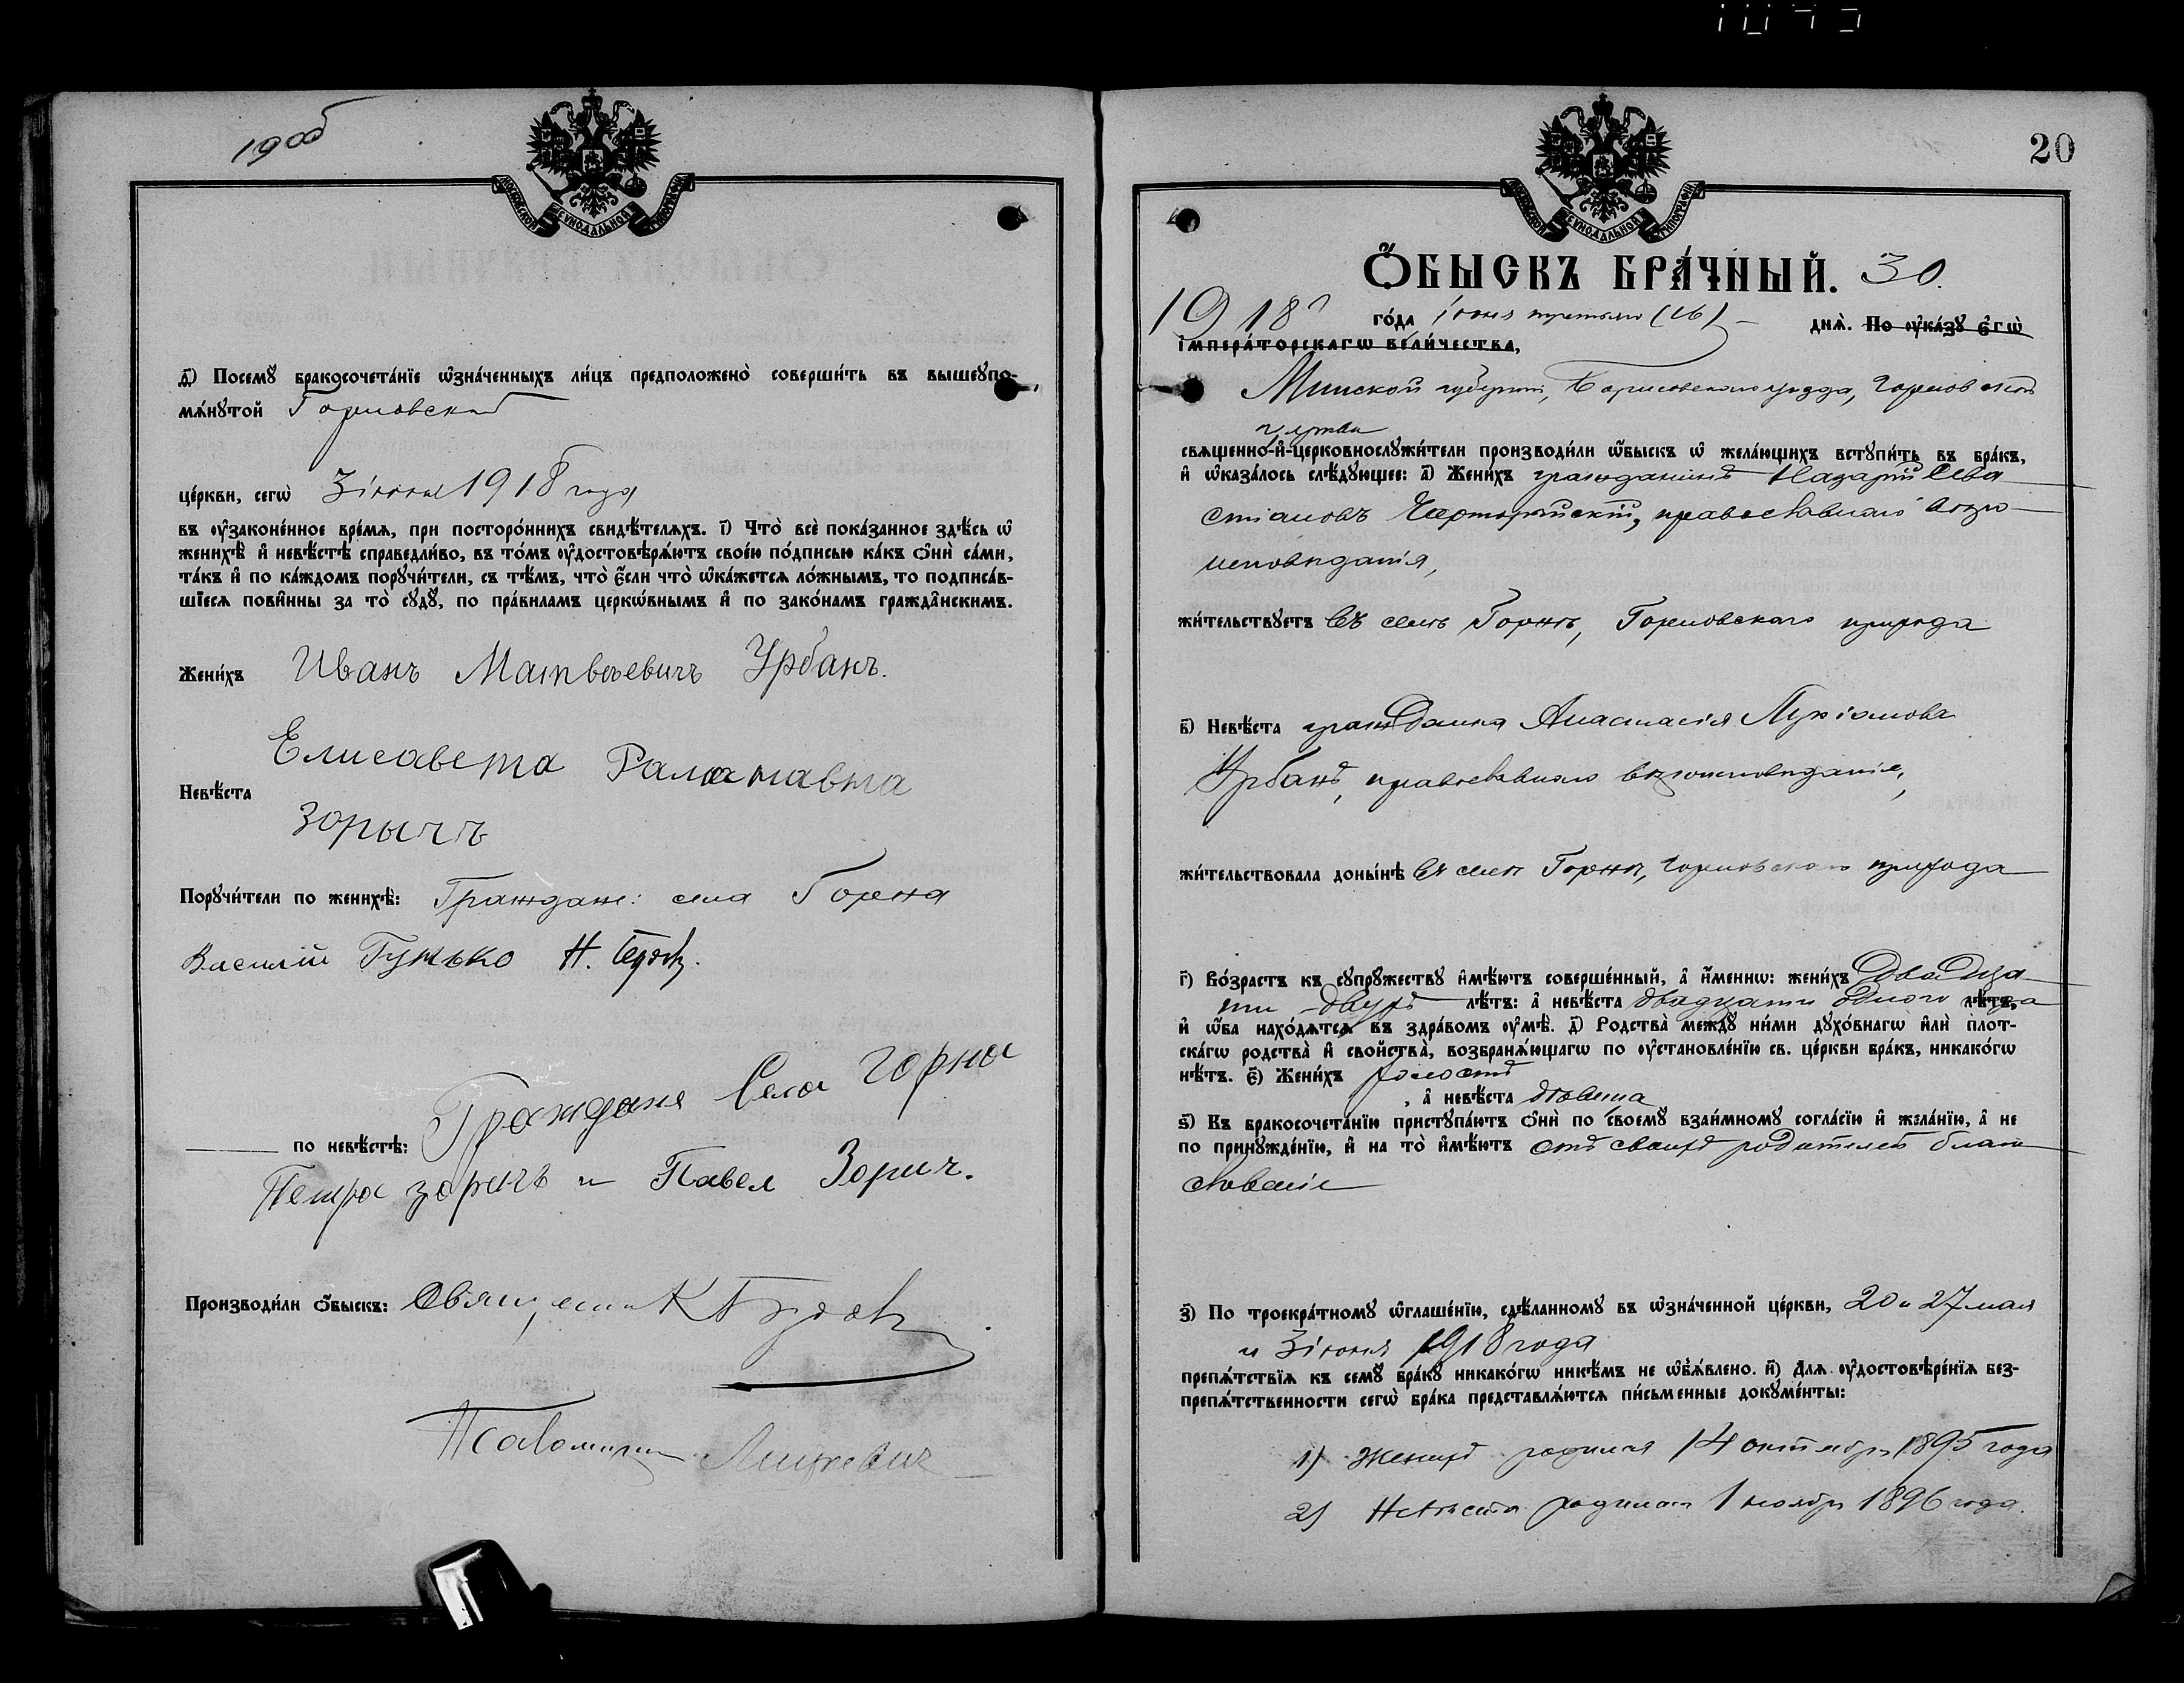 МОСКОВСКОЙ СѴНОДАЛЬНОЙ ТИПОГРАФІИ
д҃) Посемꙋ̀ бракосочета́нїе ѡ҆зна́ченныхъ ли́цъ предположено̀ соверши́ть въ вышеꙋпо-
мѧ́нꙋтой Горновской
це́ркви, сегѡ̀ 3 іюня 1918 года
въ ᲂу҆зако́ненное вре́мѧ, при посторо́ннихъ свидѣ́телѧхъ. і҃) Что̀ всѐ пока́занное здѣ́сь ѡ҆
женихѣ̀ и҆ невѣ́стѣ справедли́во, въ то́мъ ᲂу҆достовѣрѧ́ютъ свое́ю по́дписью ка́къ ѻ҆нѝ са́ми,
та́къ и҆ по ка́ждомъ порꙋчи́тели, съ тѣ́мъ, что̀ є҆́сли что̀ ѡ҆ка́жетсѧ ло́жнымъ, то подписа́в-
шїесѧ пови́нны за то̀ сꙋдꙋ̀, по пра́виламъ церкѡ́внымъ и҆ по зако́намъ гражда́нскимъ.
Жени́хъ Иванъ Матвѣевичъ Урбанъ.
Елисавета
Невѣ́ста
Зорычъ
Порꙋчи́тели по женихѣ̀: Граждане: села Горна
Василій Гунько Н.
Граждане Села Горна
—— по невѣ́стѣ:
Петра зоричъ и Павел Зорич.
Производи́ли ѻ҆́быскъ: Священникъ
Псаломщикъ
20
МОСКОВСКОЙ СѴНОДАЛЬНОЙ ТИПОГРАФІИ
Ѻ҆́БЫСКЪ БРА́ЧНЫЙ. 30.
1918 го́да іюня третьяго (16) днѧ̀. По ᲂу҆ка́зꙋ є҆гѡ̀
і҆мпера́торскагѡ вели́чества,
Минской губерніи, Борисовскаго уѣзда, Горновской
церкви
свѧщенно-и҆-церковнослꙋжи́тели производи́ли ѡ҆́быскъ ѡ҆ жела́ющихъ встꙋпи́ть въ бра́къ,
и҆ ѡ҆каза́лось слѣ́дꙋющее: а҃) Жени́хъ гражданинъ Назарій Сева
стіановъ Чарторійскій, православнаго вѣро-
исповѣданія,
жи́тельствꙋетъ въ селѣ Горнѣ, Горновскаго прихода
в҃) Невѣ́ста гражданка Анастасія Лукіанова
Урбанъ, православнаго вѣроисповѣданія,
жи́тельствовала доны́нѣ въ селѣ Горнѣ, Горновскаго прихода
г҃) Во́зрастъ къ сꙋпрꙋ́жествꙋ и҆мѣ́ютъ соверше́нный, а҆ и҆́меннѡ: жени́хъ двадца-
ти двухъ лѣ́тъ: а҆ невѣ́ста двадцати одного лѣ́тъ, года
и҆ ѻ҆́ба нахо́дѧтсѧ въ здра́вомъ ᲂу҆мѣ̀. д҃) Родства̀ междꙋ̀ ни́ми дꙋхо́внагѡ и҆лѝ пло́т-
скагѡ родства̀ и҆ сво́йства̀, возбранѧ́ющагѡ по ᲂу҆становле́нїю св. це́ркви бра́къ, никако́гѡ
нѣ́тъ. є҃) Жени́хъ холостъ
, а҆ невѣ́ста дѣвица
ѕ҃) Къ бракосочета́нїю пристꙋпа́ютъ ѻ҆нѝ по своемꙋ̀ взаи́мномꙋ согла́сїю и҆ жела́нїю, а҆ не
по принꙋжде́нїю, и҆ на то̀ и҆мѣ́ютъ отъ своихъ родителей благо
словеніе
з҃) По троекра́тномꙋ ѡ҆глаше́нїю, сдѣ́ланномꙋ въ ѡ҆зна́ченной це́ркви, 20 и 27 мая
и 3 іюня 1918 года
препѧ́тствїѧ къ семꙋ̀ бра́кꙋ никако́гѡ никѣ́мъ не ѡ҆б̾ѧ́влено. и҃) Длѧ ᲂу҆достовѣре́нїѧ без-
препѧ́тственности сегѡ̀ бра́ка представлѧ́ютсѧ пи́сьменные докꙋме́нты:
1) Женихъ родился 14 октября 1895 года
2) Невѣста родилась 1 ноября 1896 года.